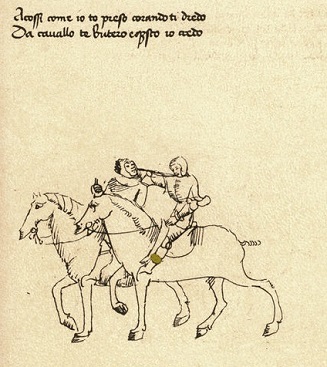 Acossi come io to preso corando ti dredo
Da cavallo te butero e qsto io credo